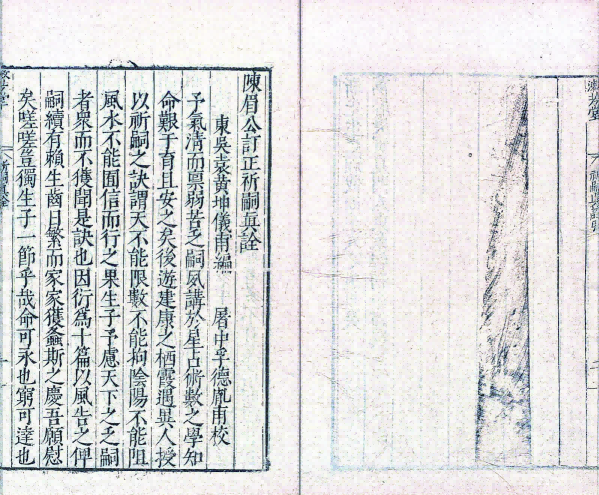 陳眉公訂正祈嗣眞詮
東吳袁黃坤儀甫編 屠中孚德胤甫校
予氣清而稟弱苦乏嗣夙講於星占術數之學知
命艱于育且安之矣後遊建康之栖霞遇異人授
以祈嗣之訣謂天不能限數不能拘陰陽不能阻
風水不能囿信而行之果生子予慮天下之乏嗣
者衆而不獲聞是訣也因衍爲十篇以風告之俾
嗣續有賴生齒日繁而家家獲螽斯之慶吾願慰
矣嗟嗟豈獨生子一節乎哉命可永也窮可達也